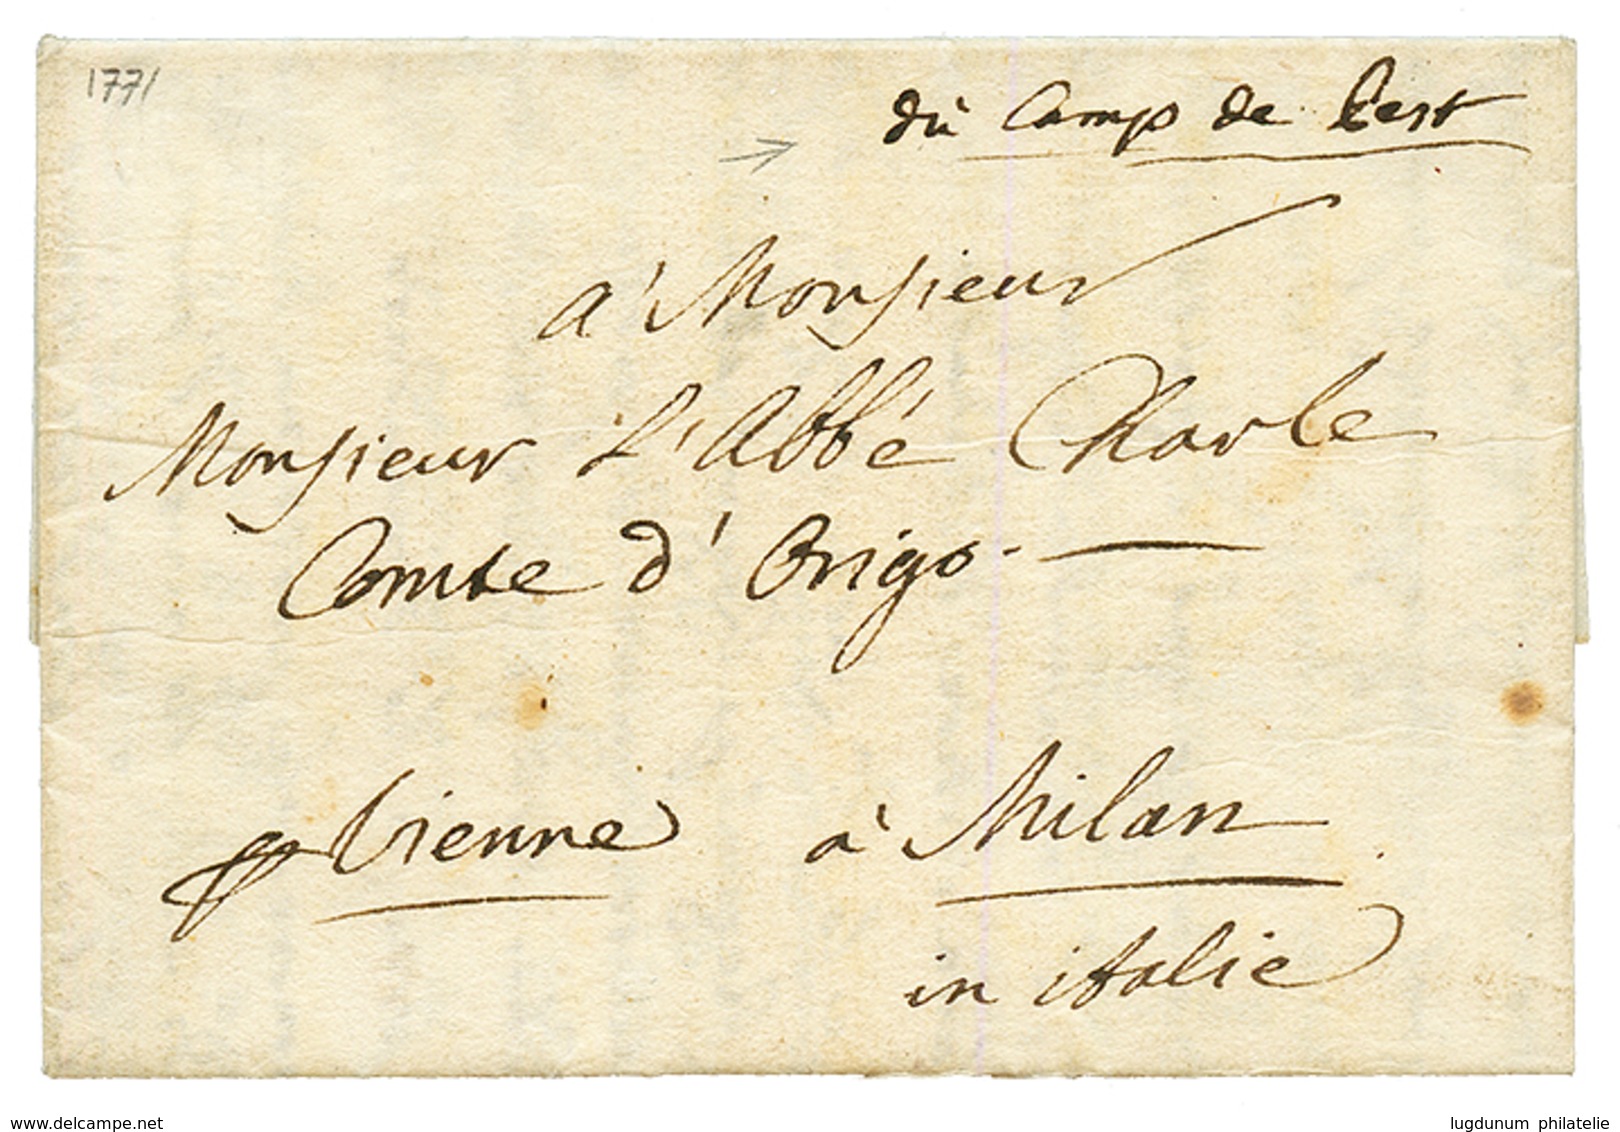 1771
dù Camp de Pest
à Monsieur
Monsieur L'Abbé Charle
Comte d'Origo.
Vienne à Milan
in italie
delcampe.net
lugdunum philatelie